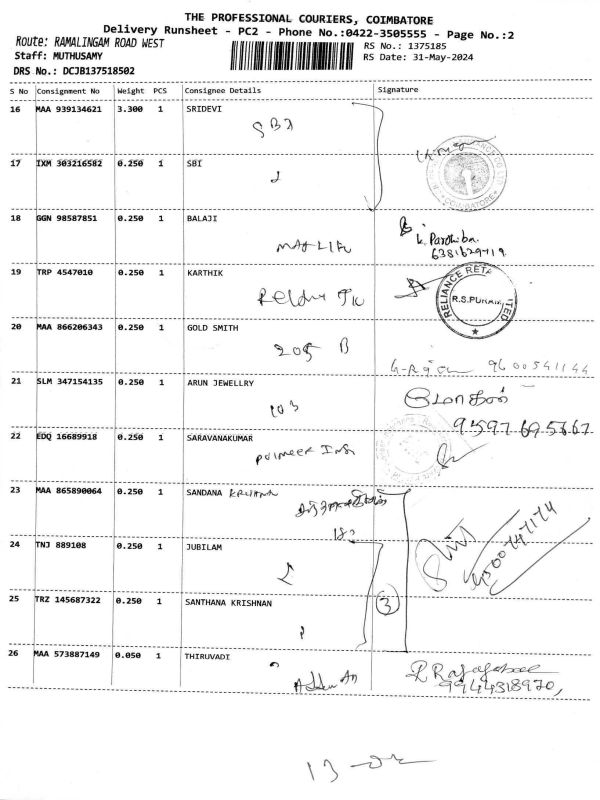 THE PROFESSIONAL COURIERS, COIMBATORE
Delivery Runsheet - PC2 - Phone No.:0422-3505555 - Page No.:2
Route: RAMALINGAM ROAD WEST
RS No.: 1375185
Staff: MUTHUSAMY
RS Date: 31-May-2024
DRS No.: DCJB137518502
S No Consignment No Weight PCS Consignee Details Signature
16 MAA 939134621 3.300 1 SRIDEVI
SBI
17 IXM 303216582 0.250 1 SBI
COIMBATORE
18 GGN 98587851 0.250 1 BALAJI
6381629719
19 TRP 4547010 0.250 1 KARTHIK
RELIANCE RETA ITED
R.S.PURAM
20 MAA 866206343 0.250 1 GOLD SMITH
205 B
9600541144
21 SLM 347154135 0.250 1 ARUN JEWELLRY
103
9597695667
22 EDQ 16689918 0.250 1 SARAVANAKUMAR
23 MAA 865890064 0.250 1 SANDANA
24 TNJ 889108 0.250 1 JUBILAM
25 TRZ 145687322 0.250 1 SANTHANA KRISHNAN
3
26 MAA 573887149 0.050 1 THIRUVADI
9944318970,
13